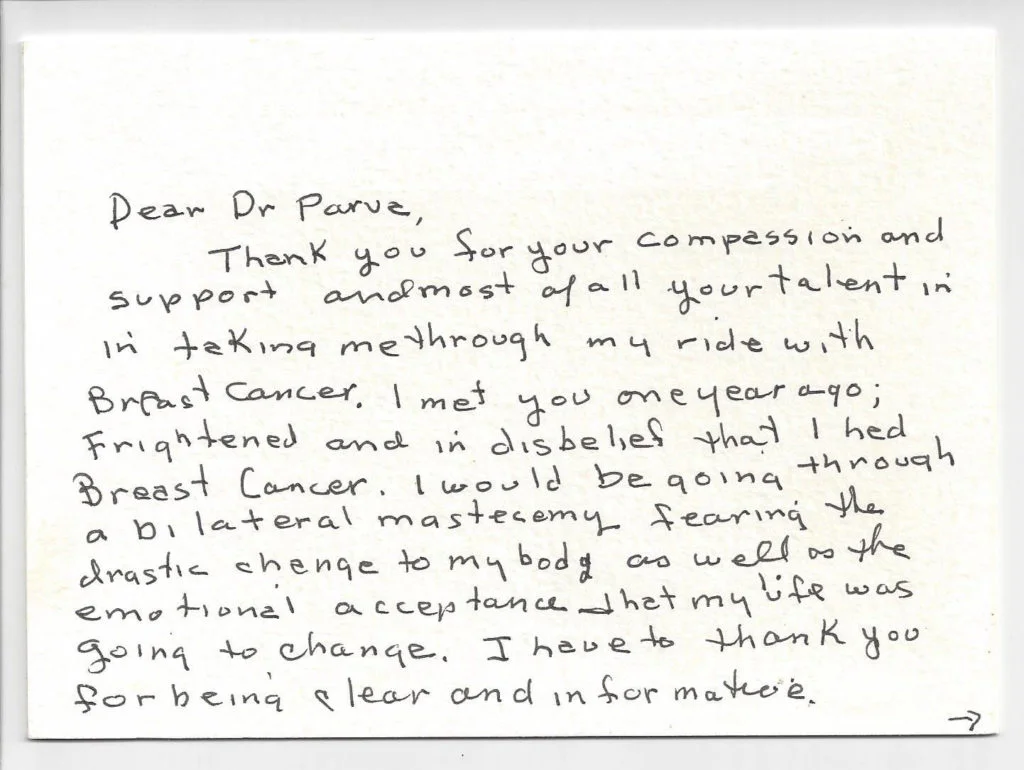 Dear Dr Parva,
Thank you for your compassion and
support and most of all your talent in
in taking me through my ride with
Breast Cancer. I met you one year ago;
Frightened and in disbelief that I had
Breast Cancer. I would be going through
a bilateral mastecemy fearing the
drastic change to my body as well as the
emotional acceptance that my life was
going to change. I have to thank you
for being clear and informative.
→